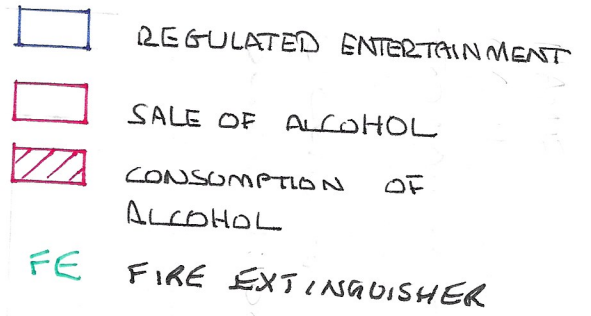 REGULATED ENTERTAINMENT
SALE OF ALCOHOL
CONSUMPTION OF
ALCOHOL
FE FIRE EXTINGUISHER